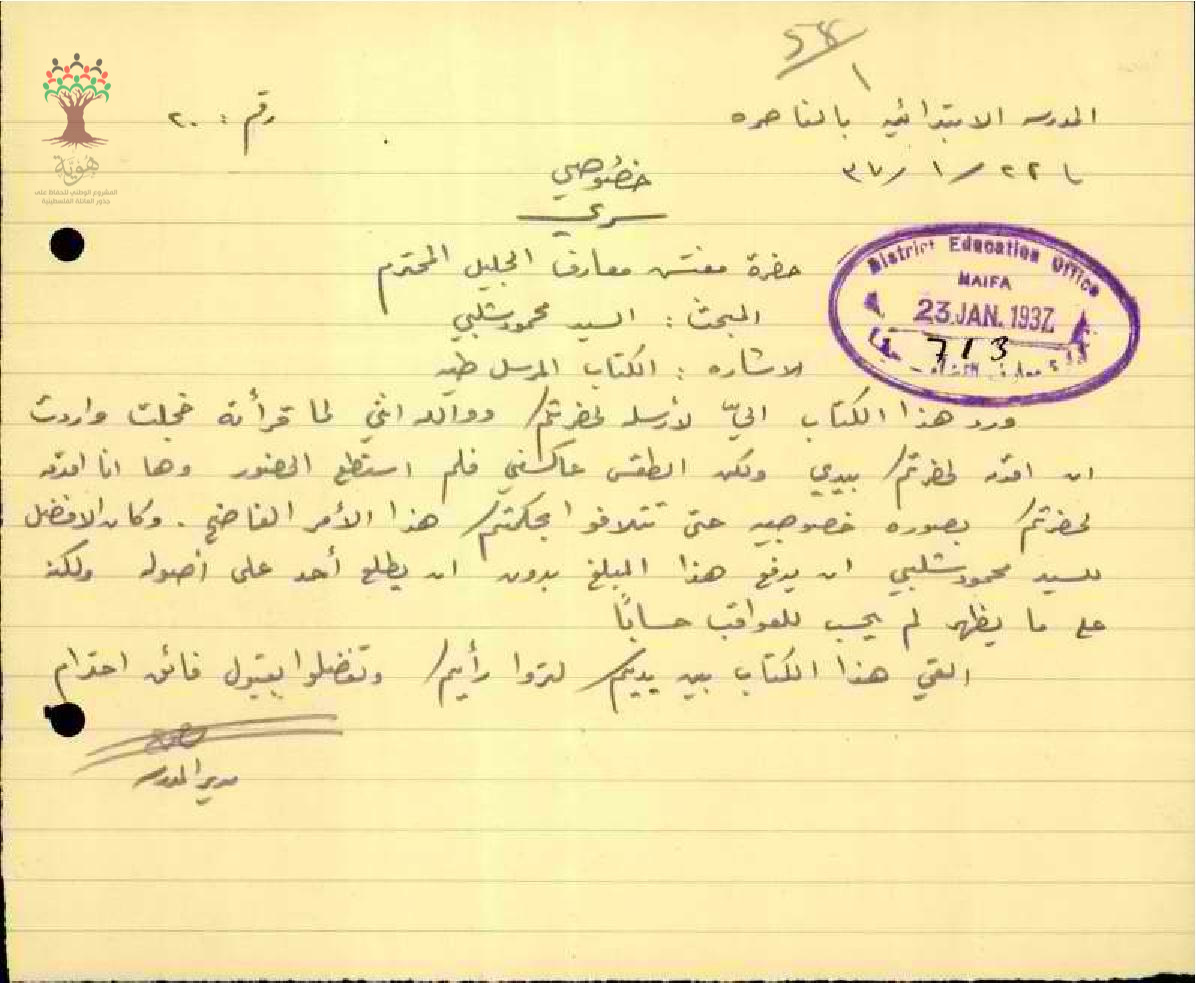 المدرسه الابتدائيه بالناصره
رقم : ٢٠
٢٢ / ١ / ٣٧
خصوصي
سري
هوية
المشروع الوطني للحفاظ على
جذور العائلة الفلسطينية
District Education Office
HAIFA
23 JAN. 1937
713
حضرة مفتش معارف الجليل المحترم
المبحث : السيد محمود شلبي
الاشاره : الكتاب المرسل طيه
ورد هذا الكتاب اليّ لأرسله لحضرتكم ووالله انني لما قرأته خجلت واردت
ان اقدمه لحضرتكم بيدي ولكن الطقس عاكسني فلم استطع الحضور وها انا اقدمه
لحضرتكم بصوره خصوصيه حتى تتلافوا بحكمتكم هذا الأمر الفاضح . وكان الافضل
للسيد محمود شلبي ان يدفع هذا المبلغ بدون ان يطلع أحد على أصوله ولكنه
على ما يظهر لم يحسب للعواقب حسابًا
القي هذا الكتاب بين يديكم لتروا رأيكم وتفضلوا بقبول فائق احترام
مدير المدرسه